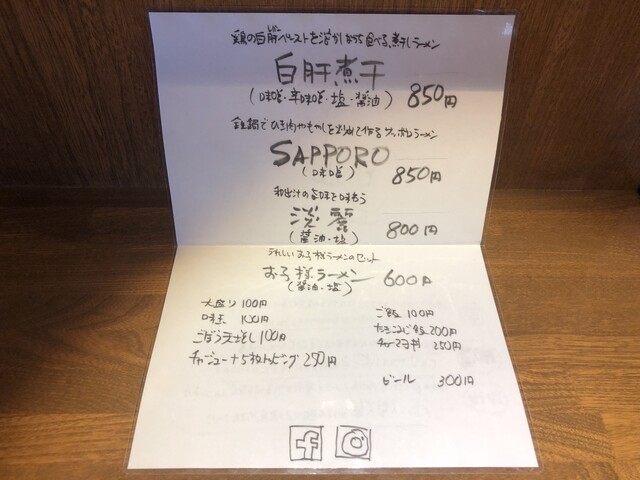 鶏の白肝ペーストを溶かしながら食べる、煮干しラーメン
白肝煮干
(味噌・辛味噌・塩・醤油) 850円
鉄鍋でひき肉やもやしを炒めて作るサッポロラーメン
SAPPORO
(味噌) 850円
和出汁の旨味を味わう
淡麗
(醤油・塩) 800円
うれしいお子様ラーメンのセット
お子様ラーメン 600円
(醤油・塩)
大盛り 100円
味玉 100円
ごぼう天ぷら 100円
チャーシュー+5枚トッピング 250円
ご飯 100円
たきこみご飯 200円
チャーマヨ丼 250円
ビール 300円
f